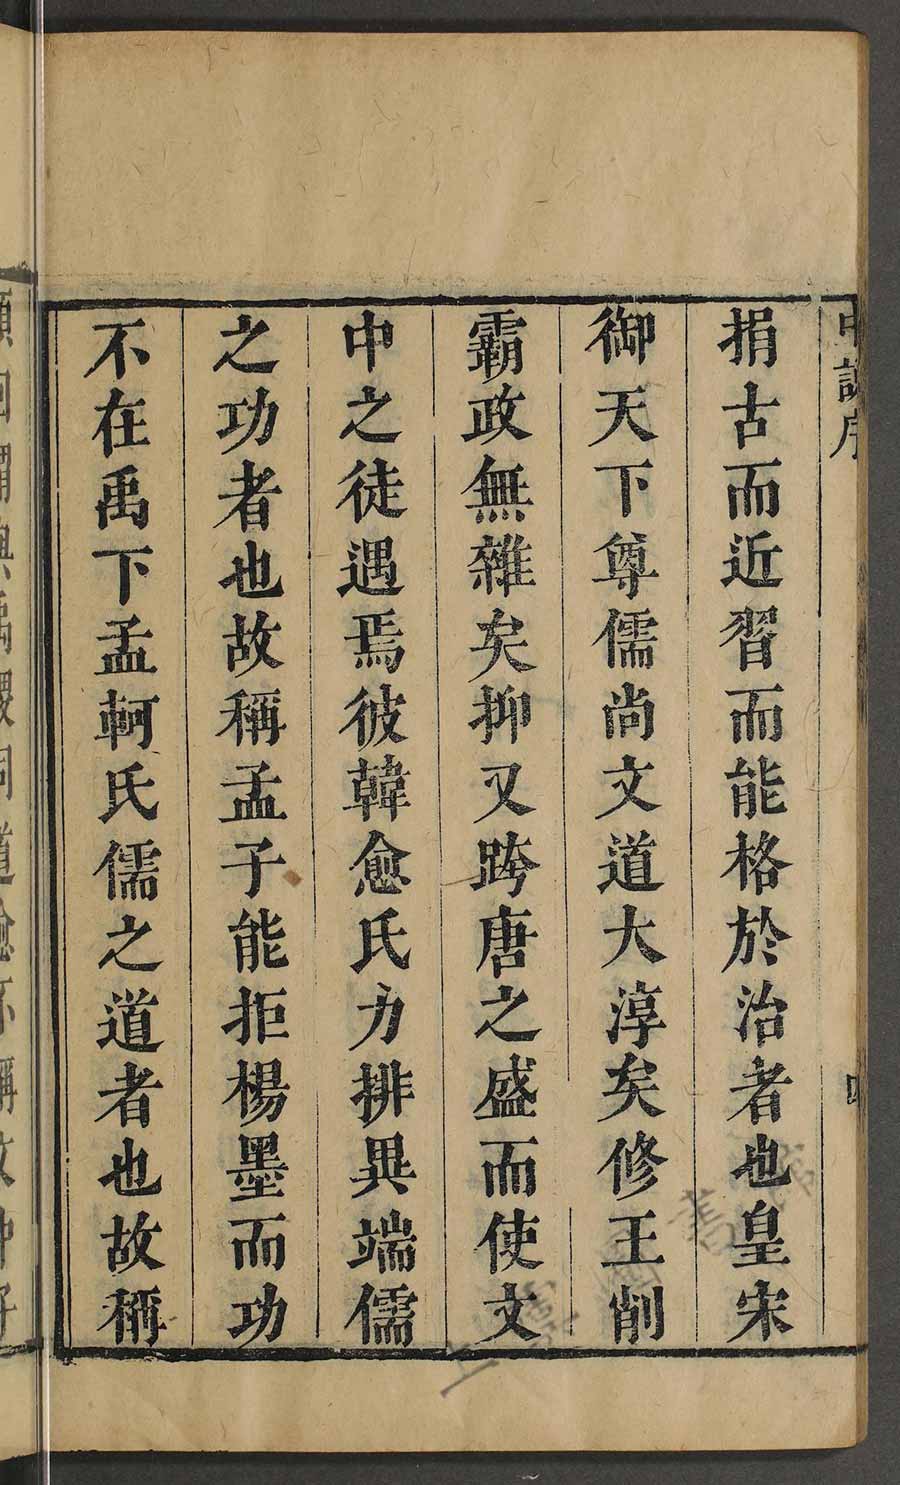 中說序
四
捐古而近習而能格於治者也皇宋
御天下尊儒尚文道大淳矣修王削
霸政無雜矣抑又跨唐之盛而使文
中之徒遇焉彼韓愈氏力排異端儒
之功者也故稱孟子能拒楊墨而功
不在禹下孟軻氏儒之道者也故稱
顏回謂與禹稷同道愈不稱文中子